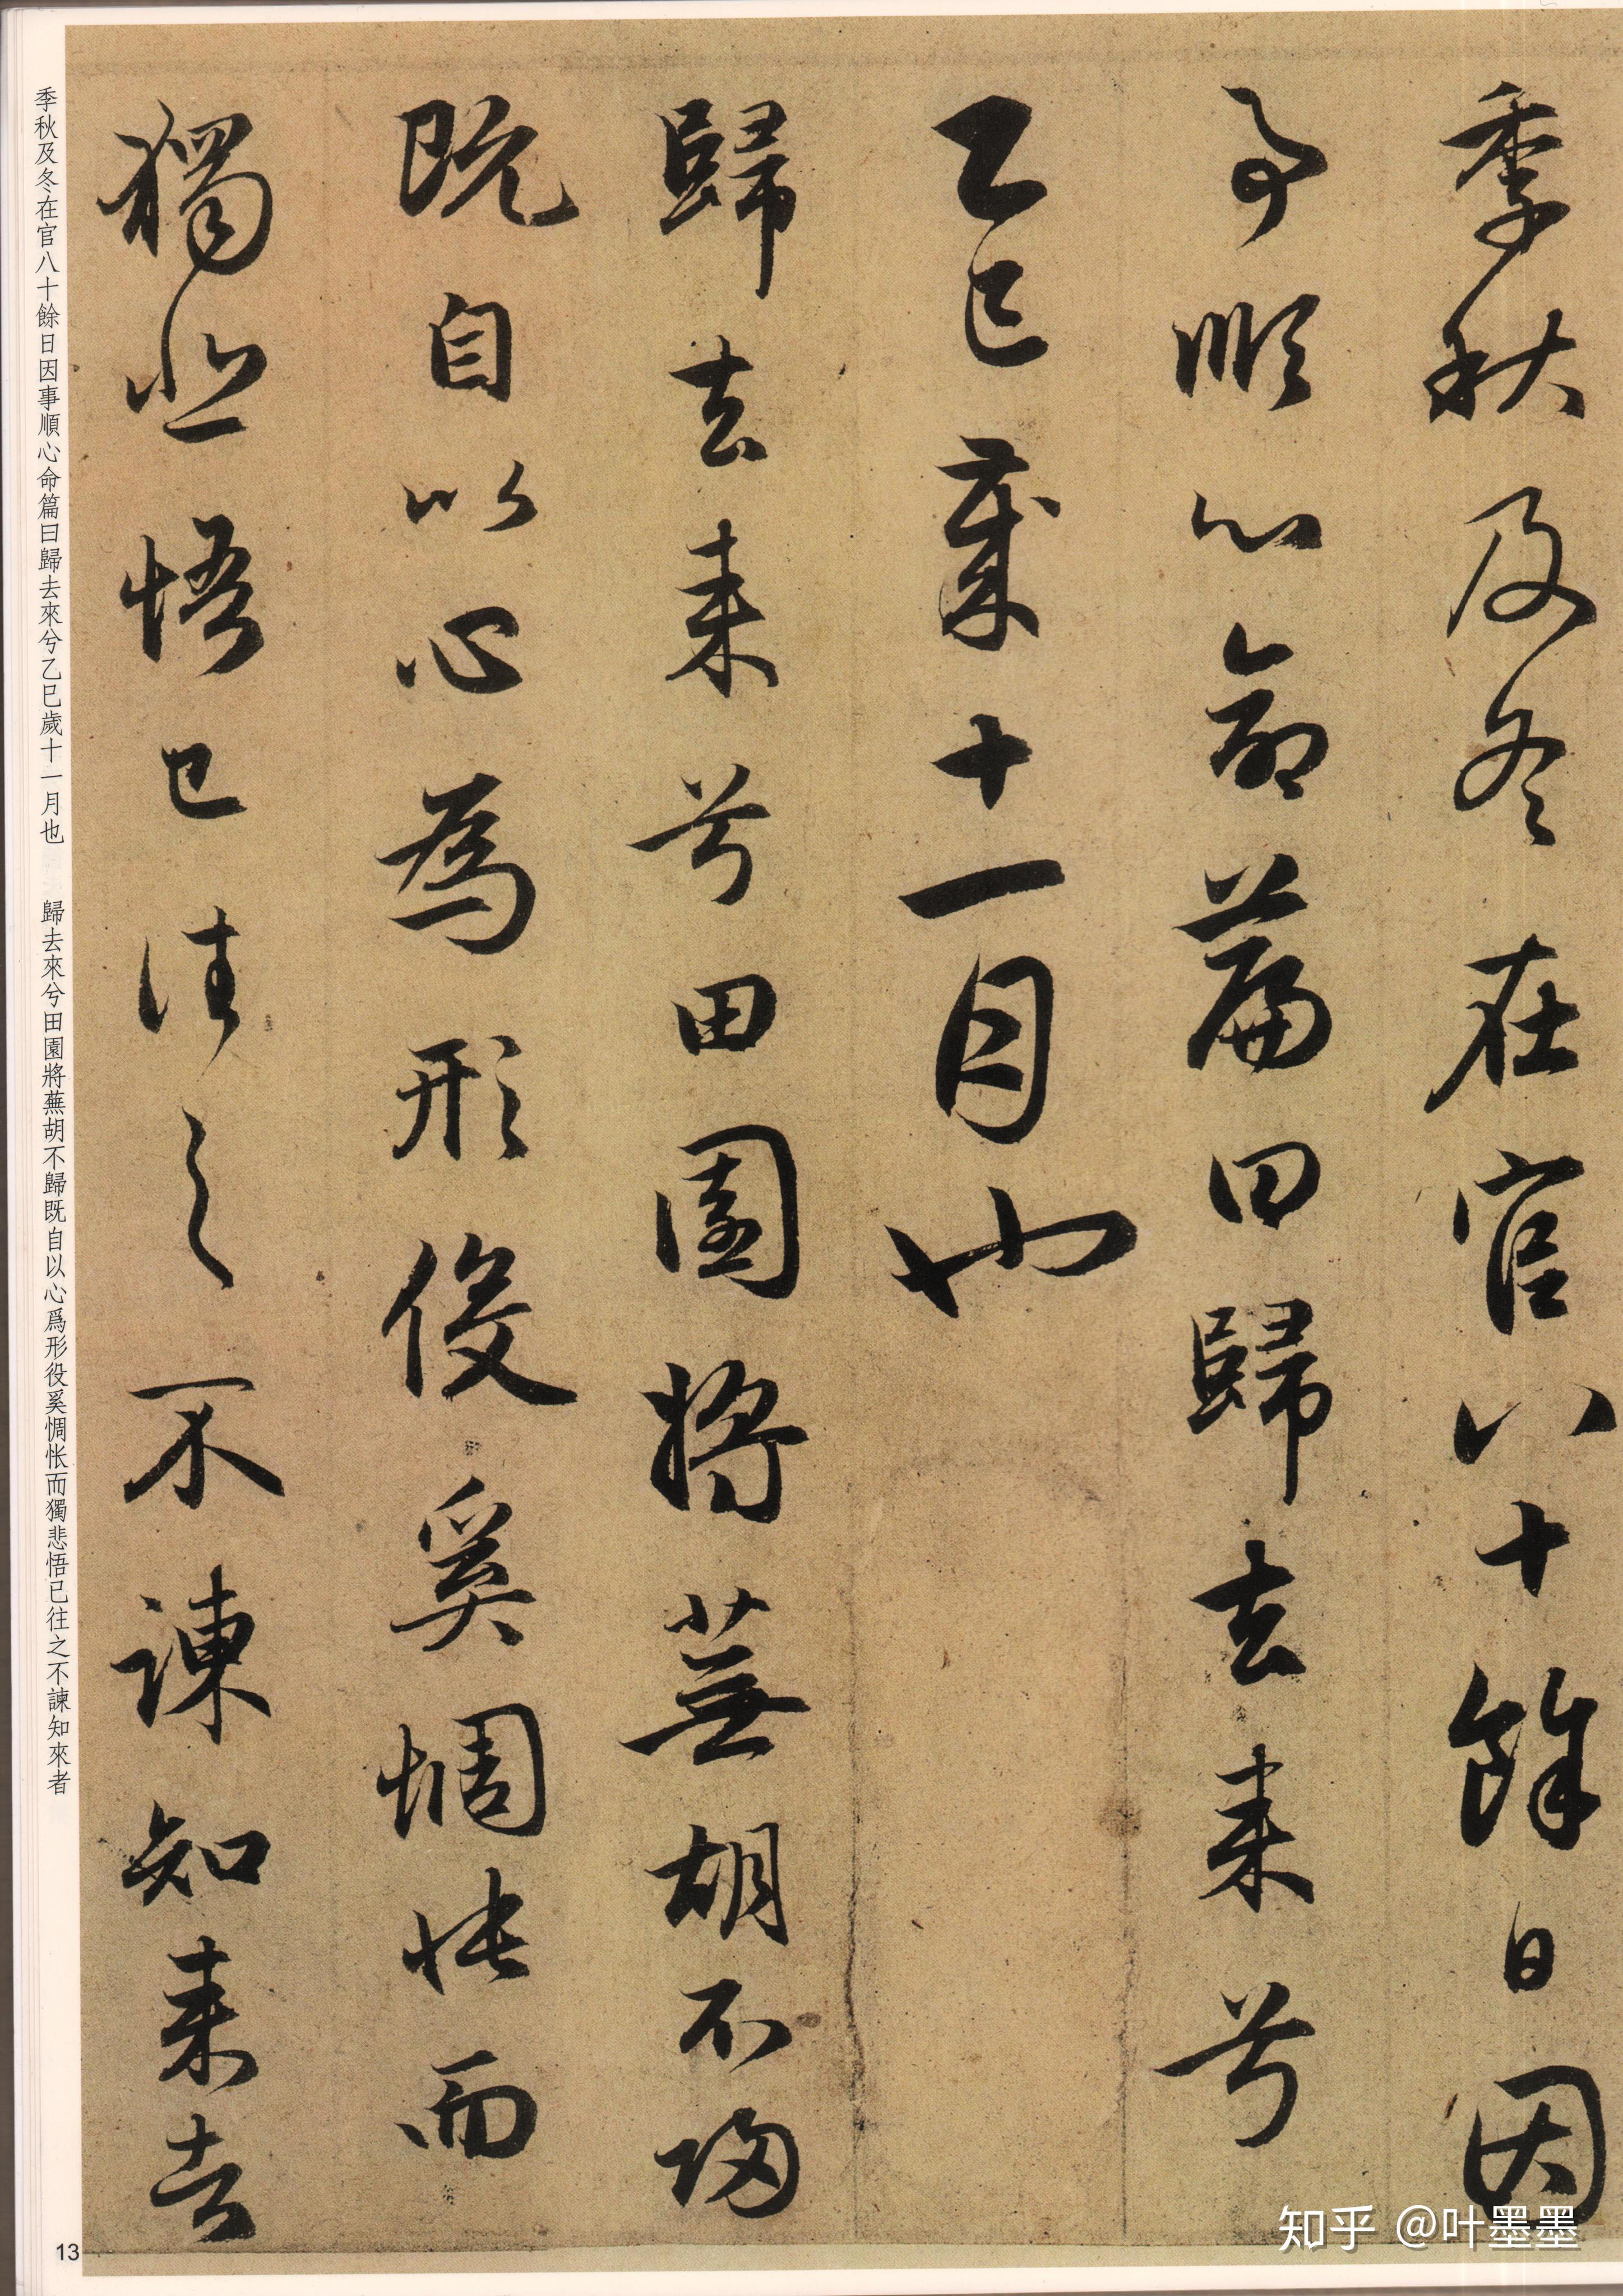 季秋及冬在官八十餘日因
事順心命篇曰歸去来兮
乙巳歲十一月也
歸去来兮田園將蕪胡不歸
既自以心為形役奚惆悵而
獨悲悟已往之不諫知来者
季秋及冬在官八十餘日因事順心命篇曰歸去來兮乙巳歲十一月也 歸去來兮田園將蕪胡不歸既自以心爲形役奚惆怅而獨悲悟已往之不諫知來者
13
知乎 @叶墨墨